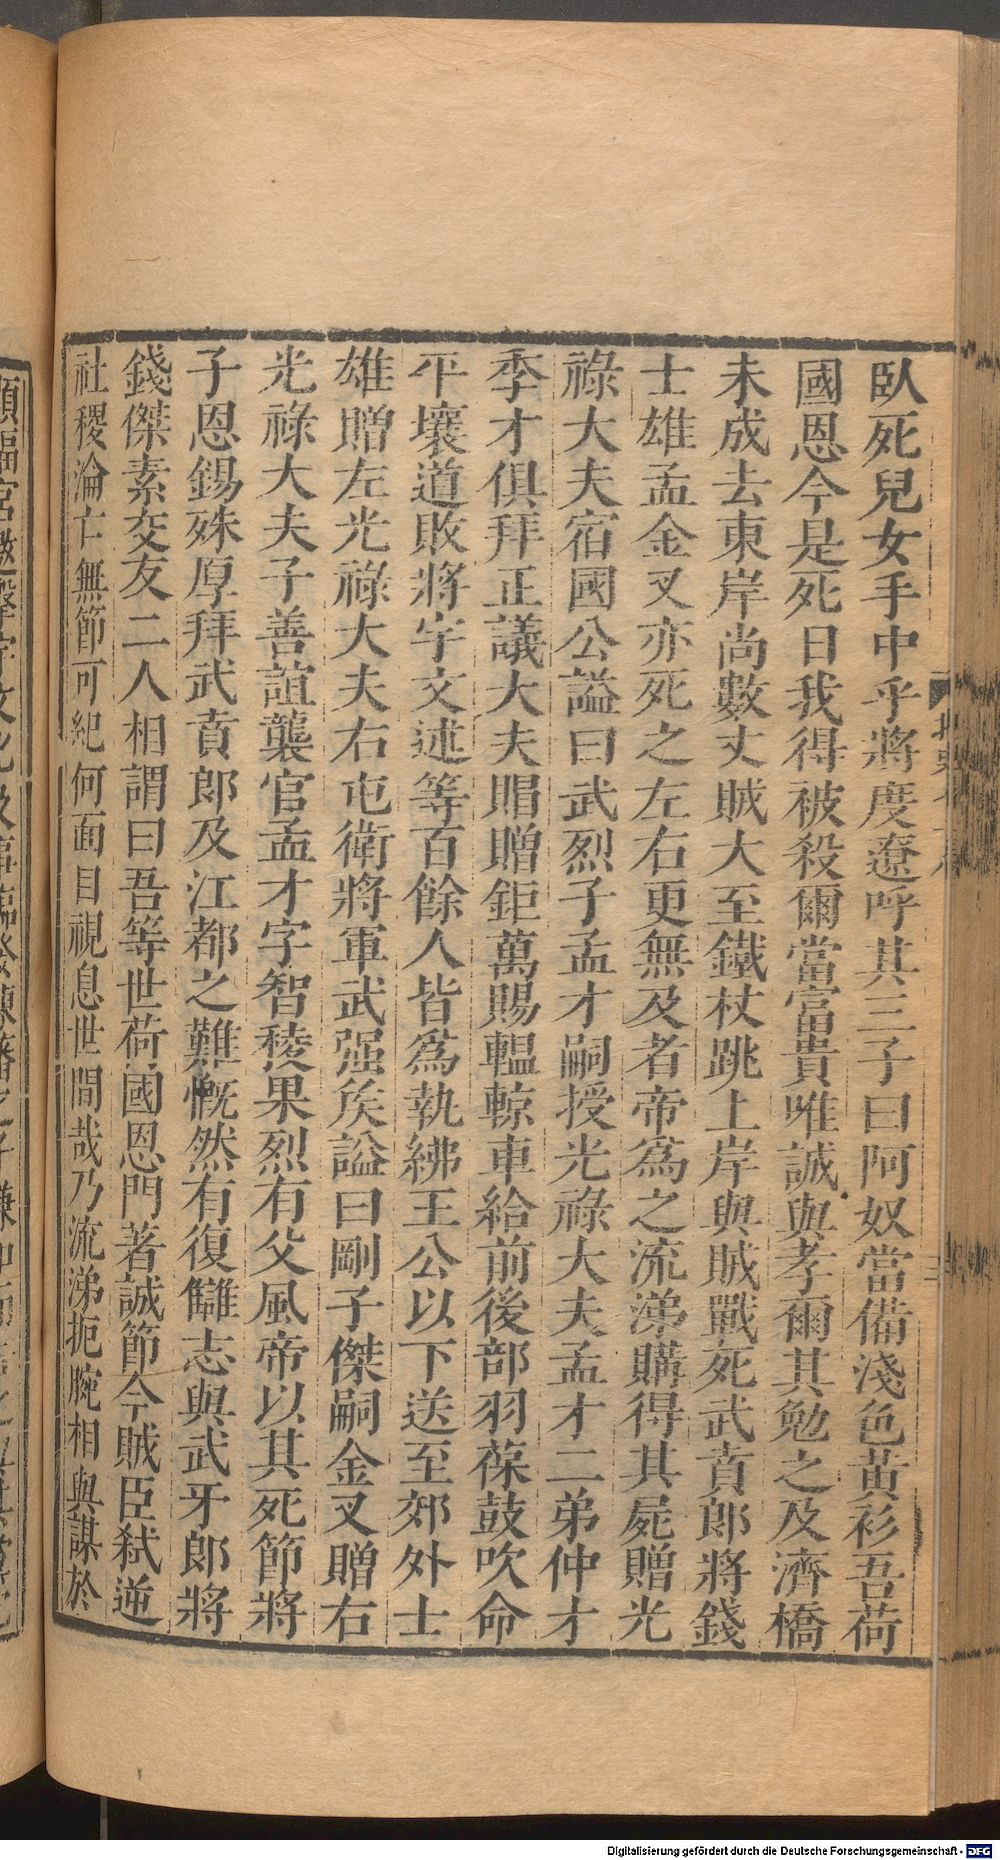 臥死兒女手中乎將度遼呼其三子曰阿奴當備淺色黃衫吾荷
國恩今是死日我得被殺爾當富貴唯誠與孝爾其勉之及濟橋
未成去東岸尚數丈賊大至鐵杖跳上岸與賊戰死武賁郎將錢
士雄孟金叉亦死之左右更無及者帝爲之流涕購得其屍贈光
祿大夫宿國公謚曰武烈子孟才嗣授光祿大夫孟才二弟仲才
季才俱拜正議大夫賵贈鉅萬賜轀輬車給前後部羽葆鼓吹命
平壤道敗將宇文述等百餘人皆爲執紼王公以下送至郊外士
雄贈左光祿大夫右屯衛將軍武强侯謚曰剛子傑嗣金叉贈右
光祿大夫子善誼襲官孟才字智稜果烈有父風帝以其死節將
子恩錫殊厚拜武賁郎及江都之難慨然有復讎志與武牙郎將
錢傑素交友二人相謂曰吾等世荷國恩門著誠節今賊臣弒逆
社稷淪亡無節可紀何面目視息世間哉乃流涕扼腕相與謀於
Digitalisierung gefördert durch die Deutsche Forschungsgemeinschaft - DFG